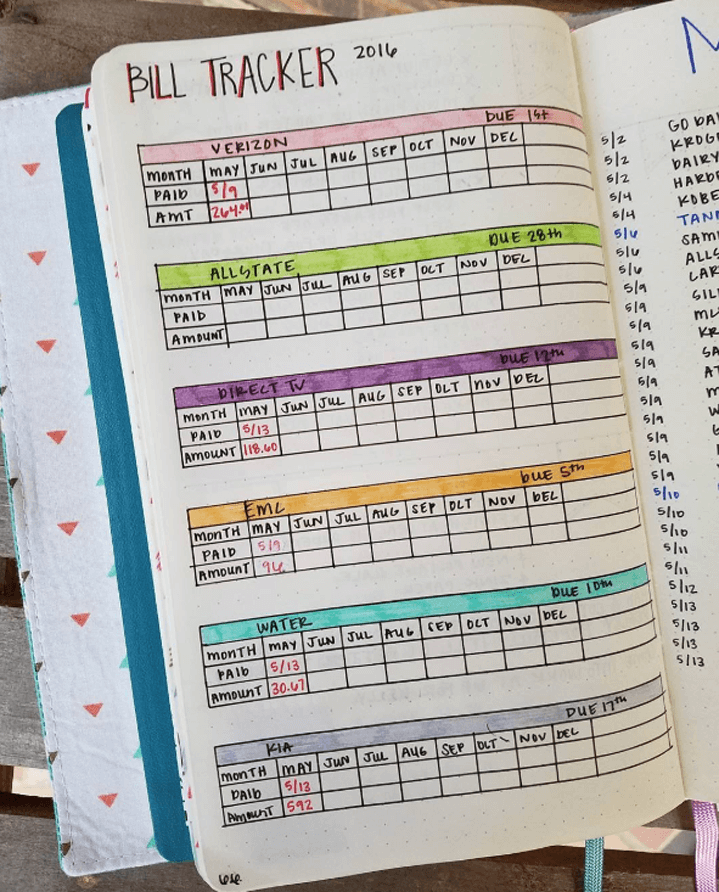 BILL TRACKER 2016
VERIZON DUE 1st
MONTH MAY JUN JUL AUG SEP OCT NOV DEC
PAID 5/9
AMT 264.01
ALLSTATE DUE 28th
MONTH MAY JUN JUL AUG SEP OCT NOV DEC
PAID
AMOUNT
DIRECT TV DUE 12th
MONTH MAY JUN JUL AUG SEP OCT NOV DEC
PAID 5/13
AMOUNT 118.60
EMC DUE 5th
MONTH MAY JUN JUL AUG SEP OCT NOV DEC
PAID 5/9
AMOUNT 96
WATER DUE 10th
MONTH MAY JUN JUL AUG SEP OCT NOV DEC
PAID 5/13
AMOUNT 30.67
KIA DUE 17th
MONTH MAY JUN JUL AUG SEP OCT NOV DEC
PAID 5/13
AMOUNT 592
5/2 GO
5/2
5/2 DAIRY
5/4
5/4 KOBE
5/6
5/6
5/6
5/9
5/9
5/9
5/9
5/9
5/9
5/9
5/9
5/9
5/9
5/9
5/10
5/10
5/10
5/11
5/11
5/12
5/13
5/13
5/13
5/13